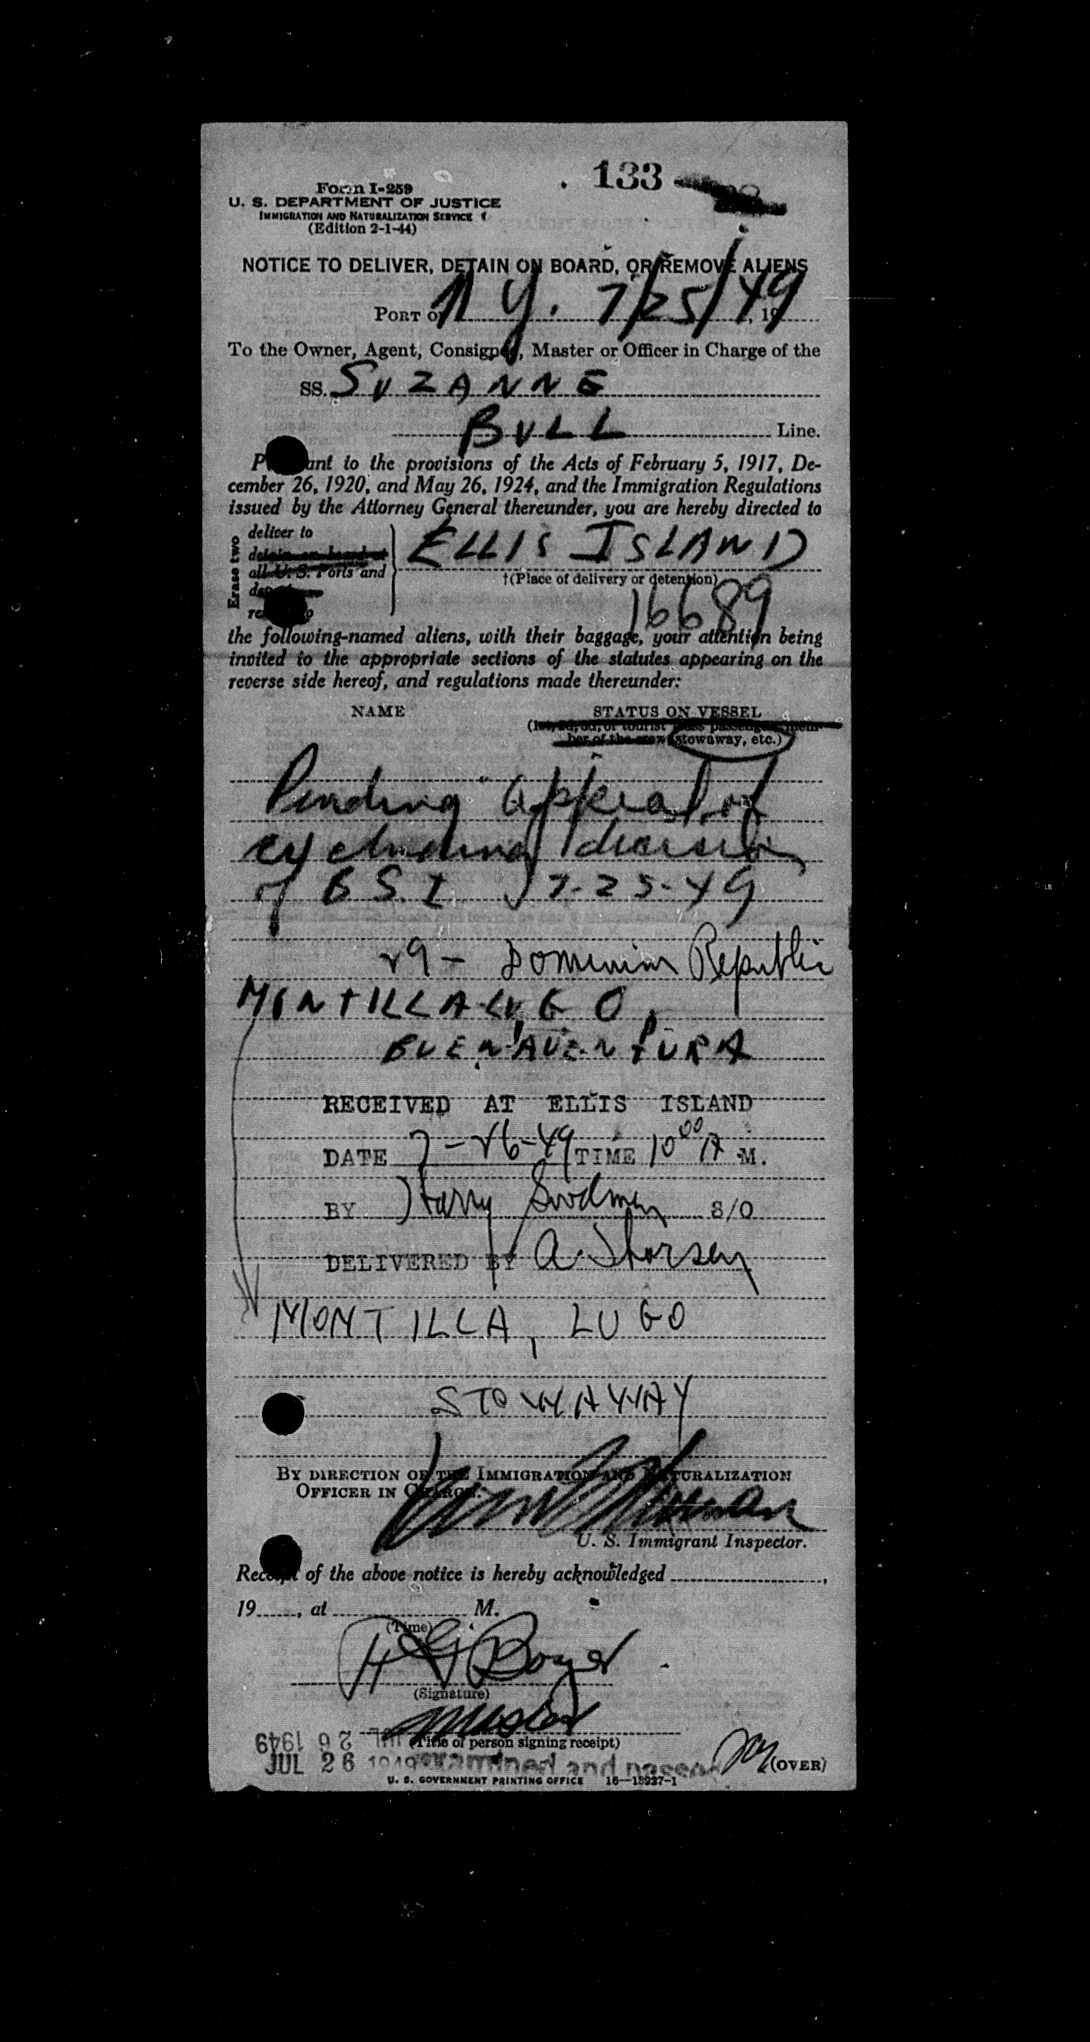 133
Form I-259
U. S. DEPARTMENT OF JUSTICE
IMMIGRATION AND NATURALIZATION SERVICE
(Edition 2-1-44)
NOTICE TO DELIVER, DETAIN ON BOARD, OR REMOVE ALIENS
PORT OF N.Y. 7/25/49, 19
To the Owner, Agent, Consignee, Master or Officer in Charge of the
SS. SUZANNE
BULL Line.
Pursuant to the provisions of the Acts of February 5, 1917, De-
cember 26, 1920, and May 26, 1924, and the Immigration Regulations
issued by the Attorney General thereunder, you are hereby directed to
Erase two
deliver to
detain on board at
all U. S. Ports and
ELLIS ISLAND
†(Place of delivery or detention)
16689
the following-named aliens, with their baggage, your attention being
invited to the appropriate sections of the statutes appearing on the
reverse side hereof, and regulations made thereunder:
NAME STATUS ON VESSEL
(1st, 2d, 3d, or tourist class passenger, mem-
ber of the crew, stowaway, etc.)
Pending appeal of
excluding decision
of B.S.I 7-25-49
29 - Dominin Republic
MONTILLA-LUGO,
BUENAVENTURA
RECEIVED AT ELLIS ISLAND
DATE 7-26-49 TIME 10 00 A.M.
BY Harry S/O
DELIVERED BY A.
MONTILLA, LUGO
STOWAWAY
BY DIRECTION OF THE IMMIGRATION AND NATURALIZATION
OFFICER IN CHARGE.
U. S. Immigrant Inspector.
Receipt of the above notice is hereby acknowledged ,
19 , at M.
(Time)
H G Boyer
(Signature)
Master
(Title of person signing receipt)
JUL 26 1949
JUL 26 1949 Examined and passed
(OVER)
U. S. GOVERNMENT PRINTING OFFICE 16—13927-1